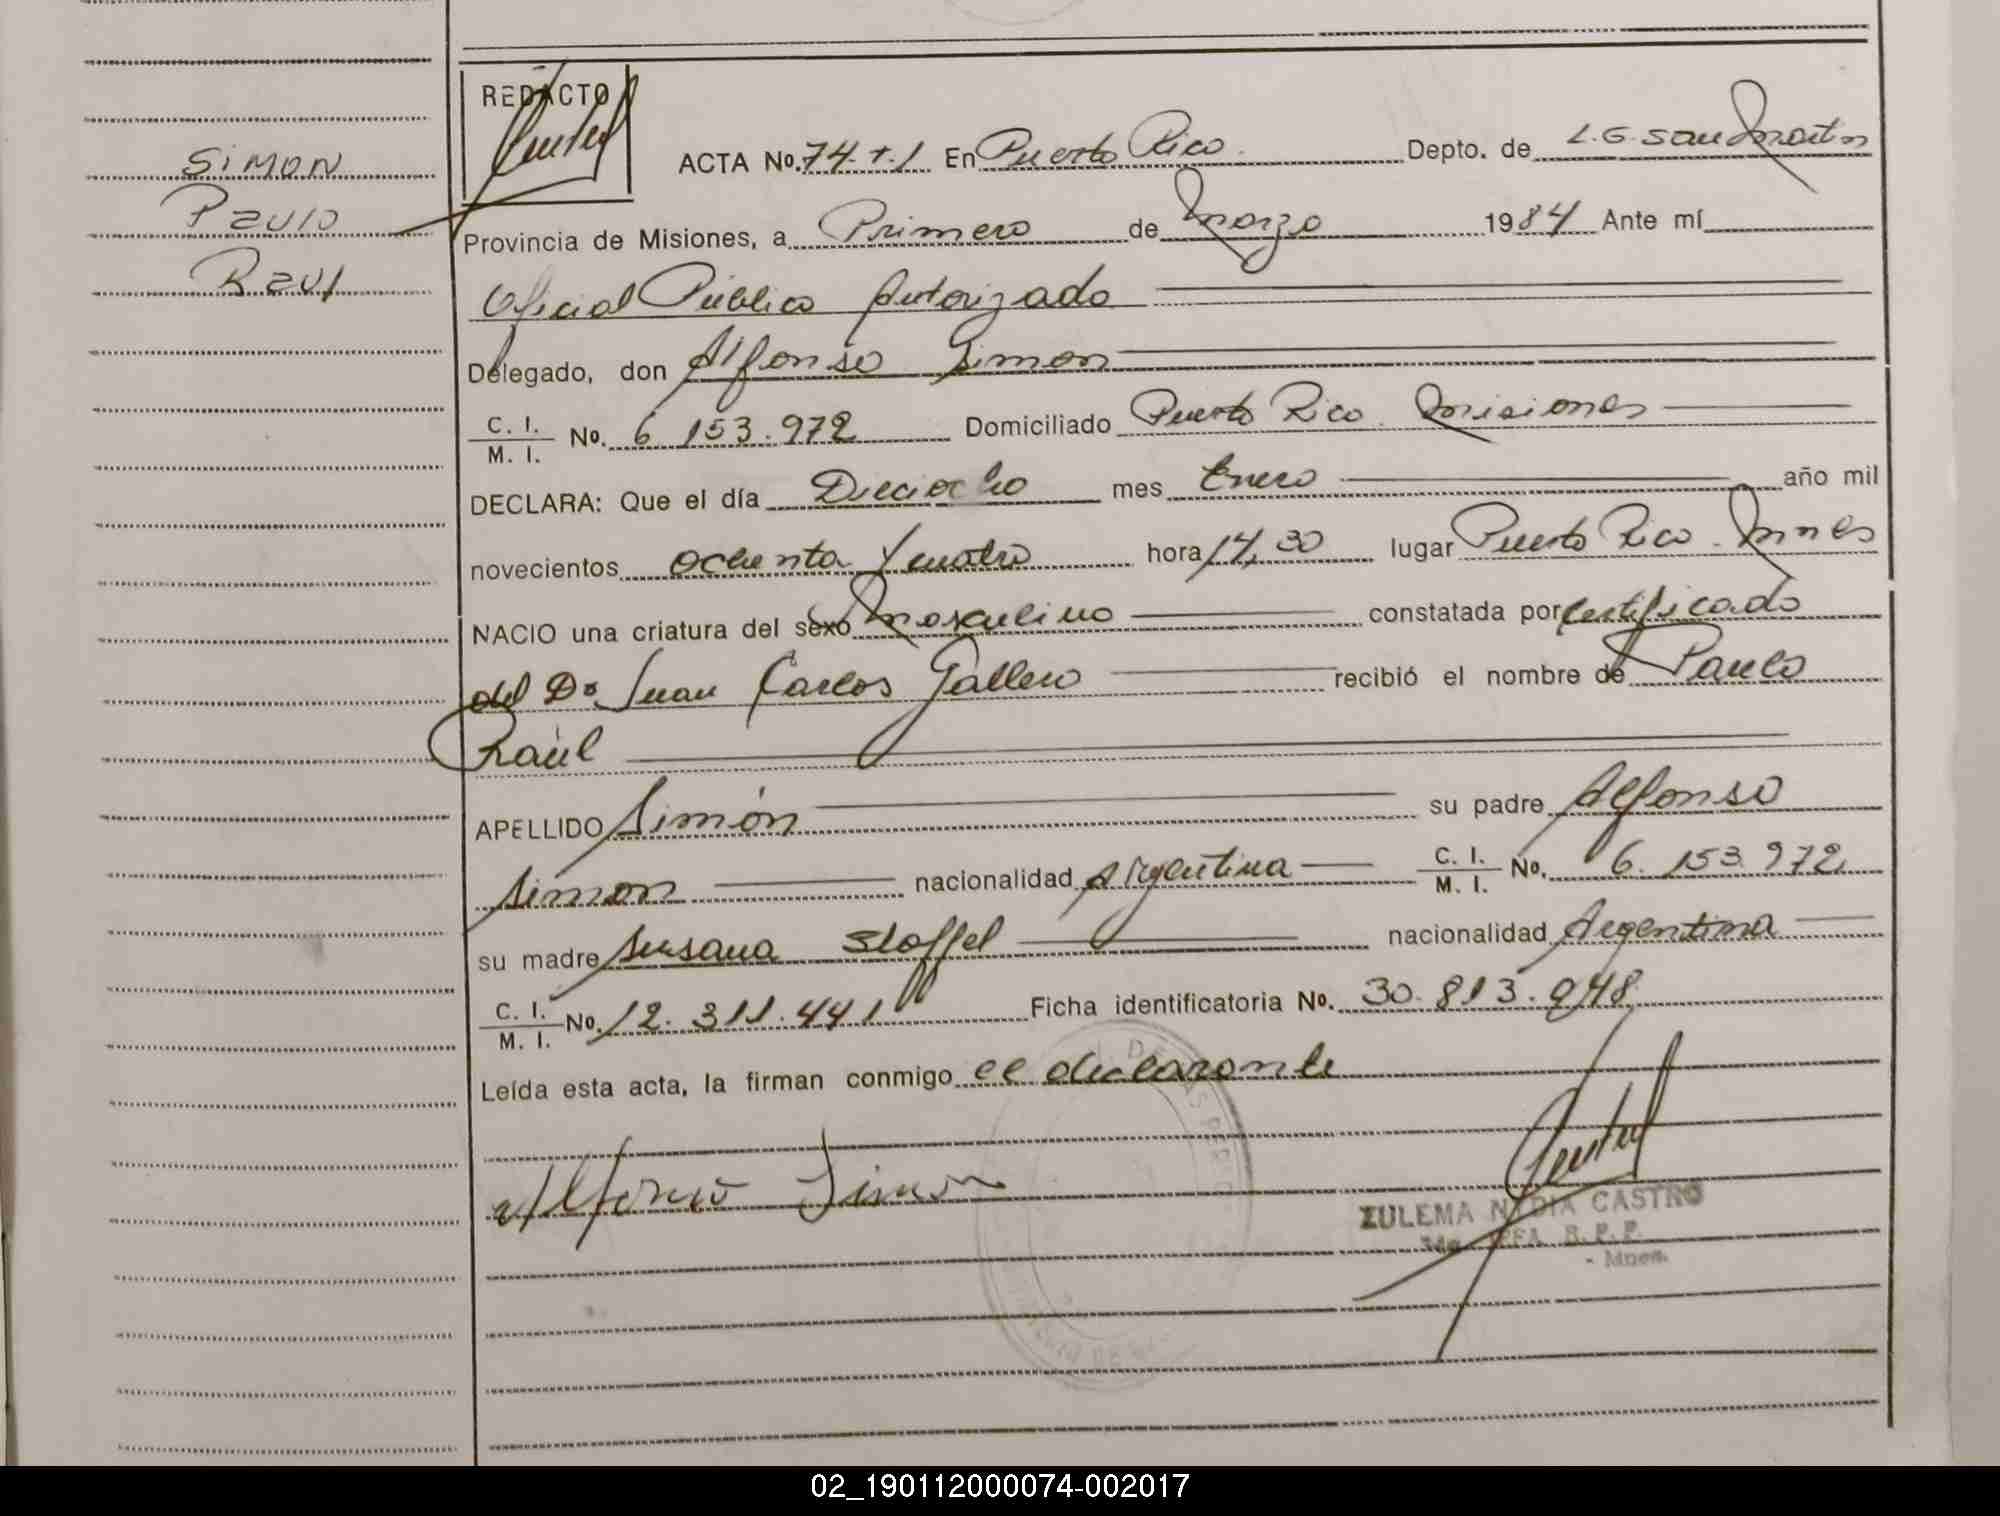 SIMON
Paulo
Raul
REDACTO
ACTA No. 74. t. I En Puerto Rico. Depto. de L.G. San Martin
Provincia de Misiones, a Primero de Marzo 1984 Ante mí
Oficial Público Autorizado
Delegado, don Alfonso Simon
C. I. / M. I. No. 6.153.972 Domiciliado Puerto Rico. Misiones
DECLARA: Que el día Dieciocho mes Enero año mil
novecientos ochenta y cuatro hora 14,30 lugar Puerto Rico. Mnes
NACIO una criatura del sexo Masculino constatada por Certificado
del Dr Juan Carlos Gallero recibió el nombre de Paulo
Raúl
APELLIDO Simón su padre Alfonso
Simon nacionalidad Argentina C. I. / M. I. No. 6.153.972
su madre Susana Stoffel nacionalidad Argentina
C. I. / M. I. No. 12.311.441 Ficha identificatoria No. 30.813.948
Leída esta acta, la firman conmigo el declarante
Alfonso Simon
ZULEMA NYDIA CASTRO
JEFA R.P.P.
- Mnes.
02_190112000074-002017